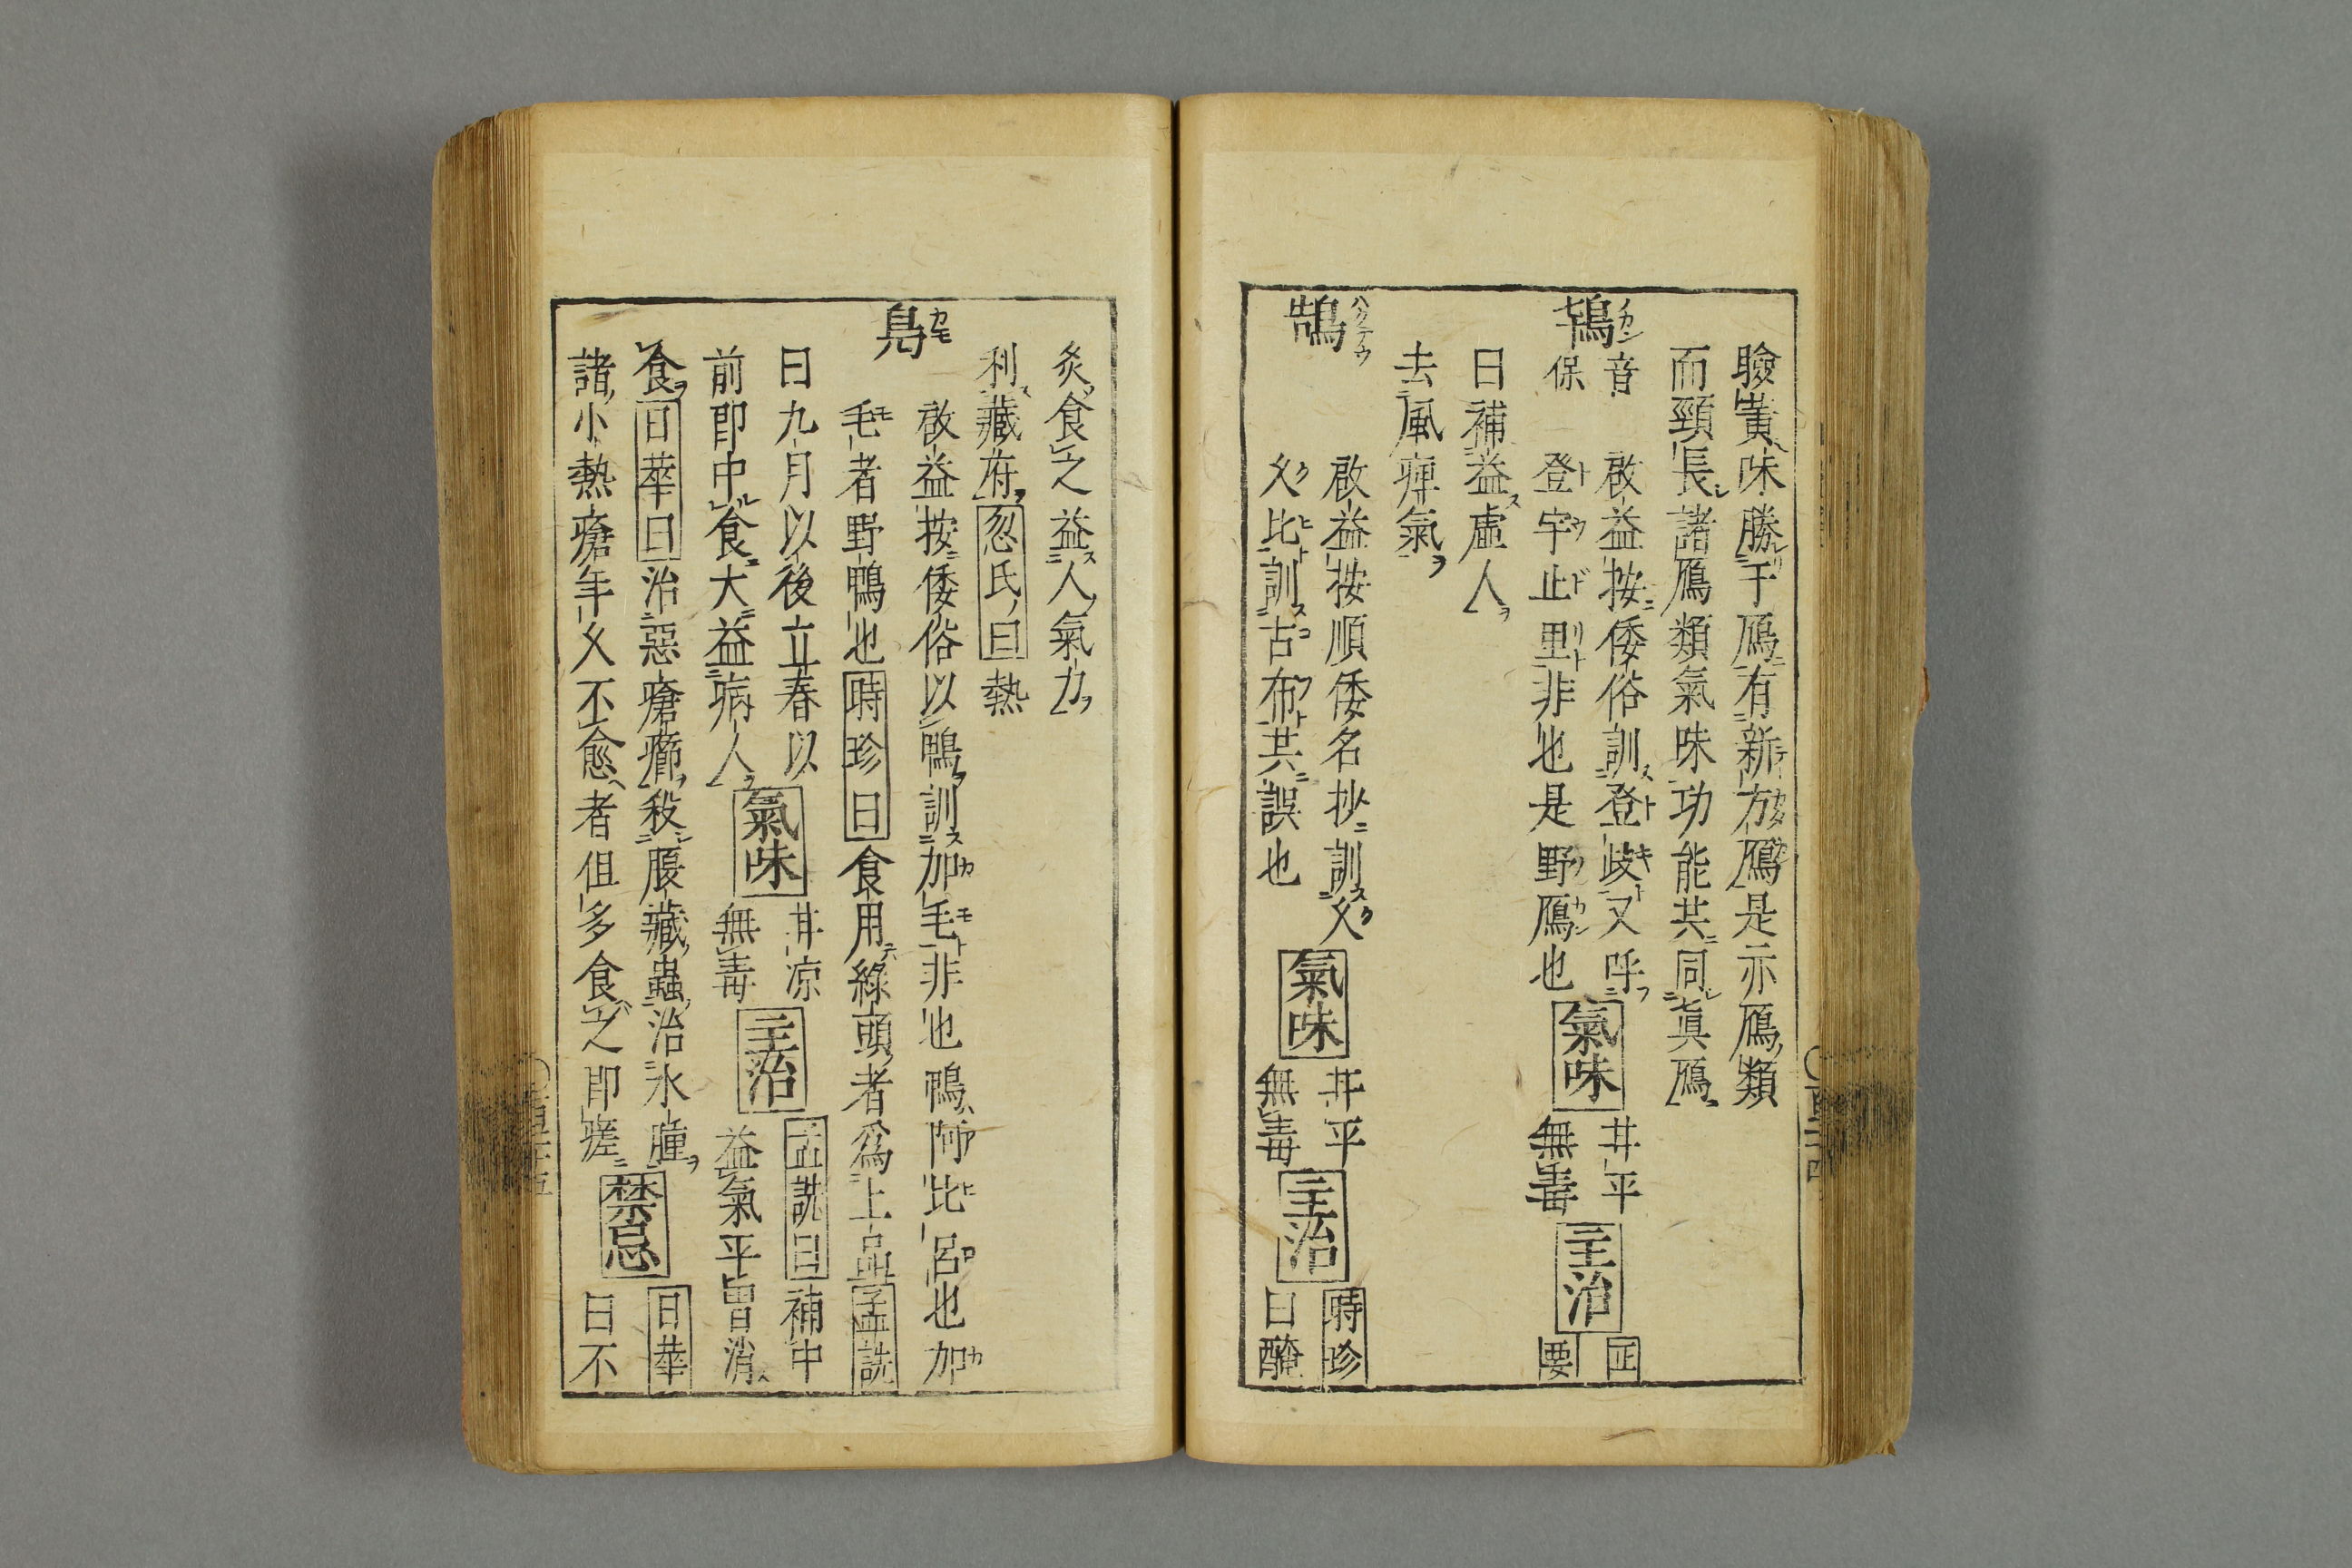 臉黃味勝于鴈有新方鴈是亦鴈類
而頸長諸鴈類氣味功能共同眞鴈
鴇
音保
啟益按倭俗訓登歧又呼
登宇止里非也是野鴈也
氣味
甘平
無毒
主治
正要
曰補益虛人
去風痺氣
鵠
啟益按順倭名抄訓久
久比訓古布共誤也
氣味
甘平
無毒
主治
時珍
曰醃
炙食之益人氣力
利藏府忽氏曰熱
鳧
啟益按倭俗以鴨訓加毛非也鴨阿比呂也加
毛者野鴨也時珍曰食用綠頭者爲上品孟詵
曰九月以後立春以
前即中食大益病人
氣味
甘凉
無毒
主治
孟詵曰補中
益氣平胃消
食日華曰治惡瘡癤殺腹藏蟲治水腫
諸小熱瘡年久不愈者但多食之即瘥
禁忌
日華
曰不